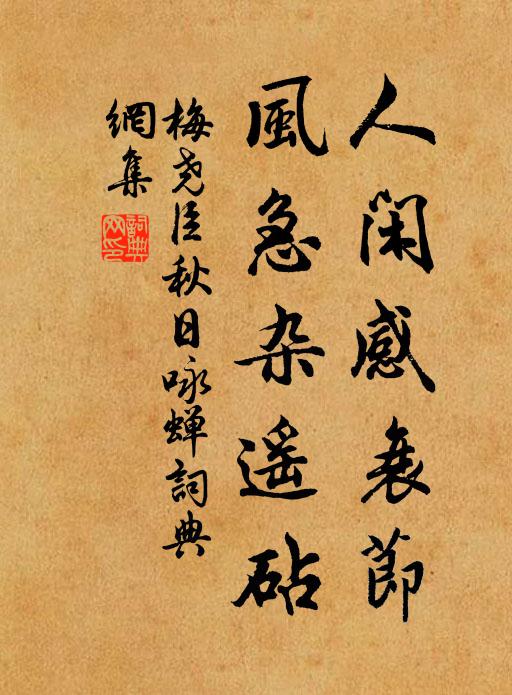 人闲感衰節
風急杂遥砧
梅尧臣秋日咏蝉詞典
網集
詞典网印